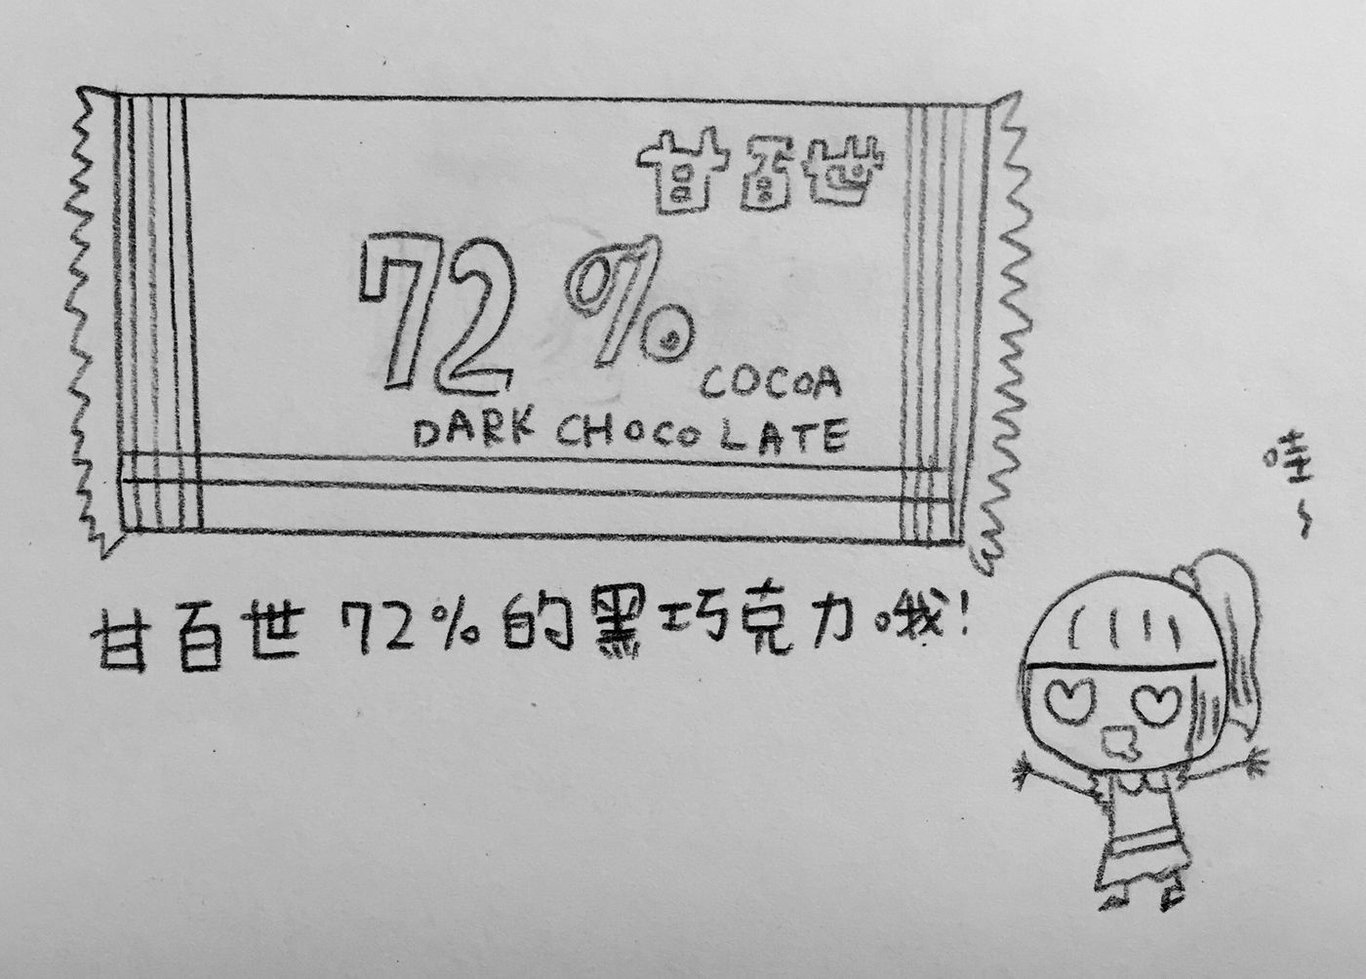 甘百世
72%
COCOA
DARK CHOCOLATE
甘百世72%的黑巧克力哦!
哇~